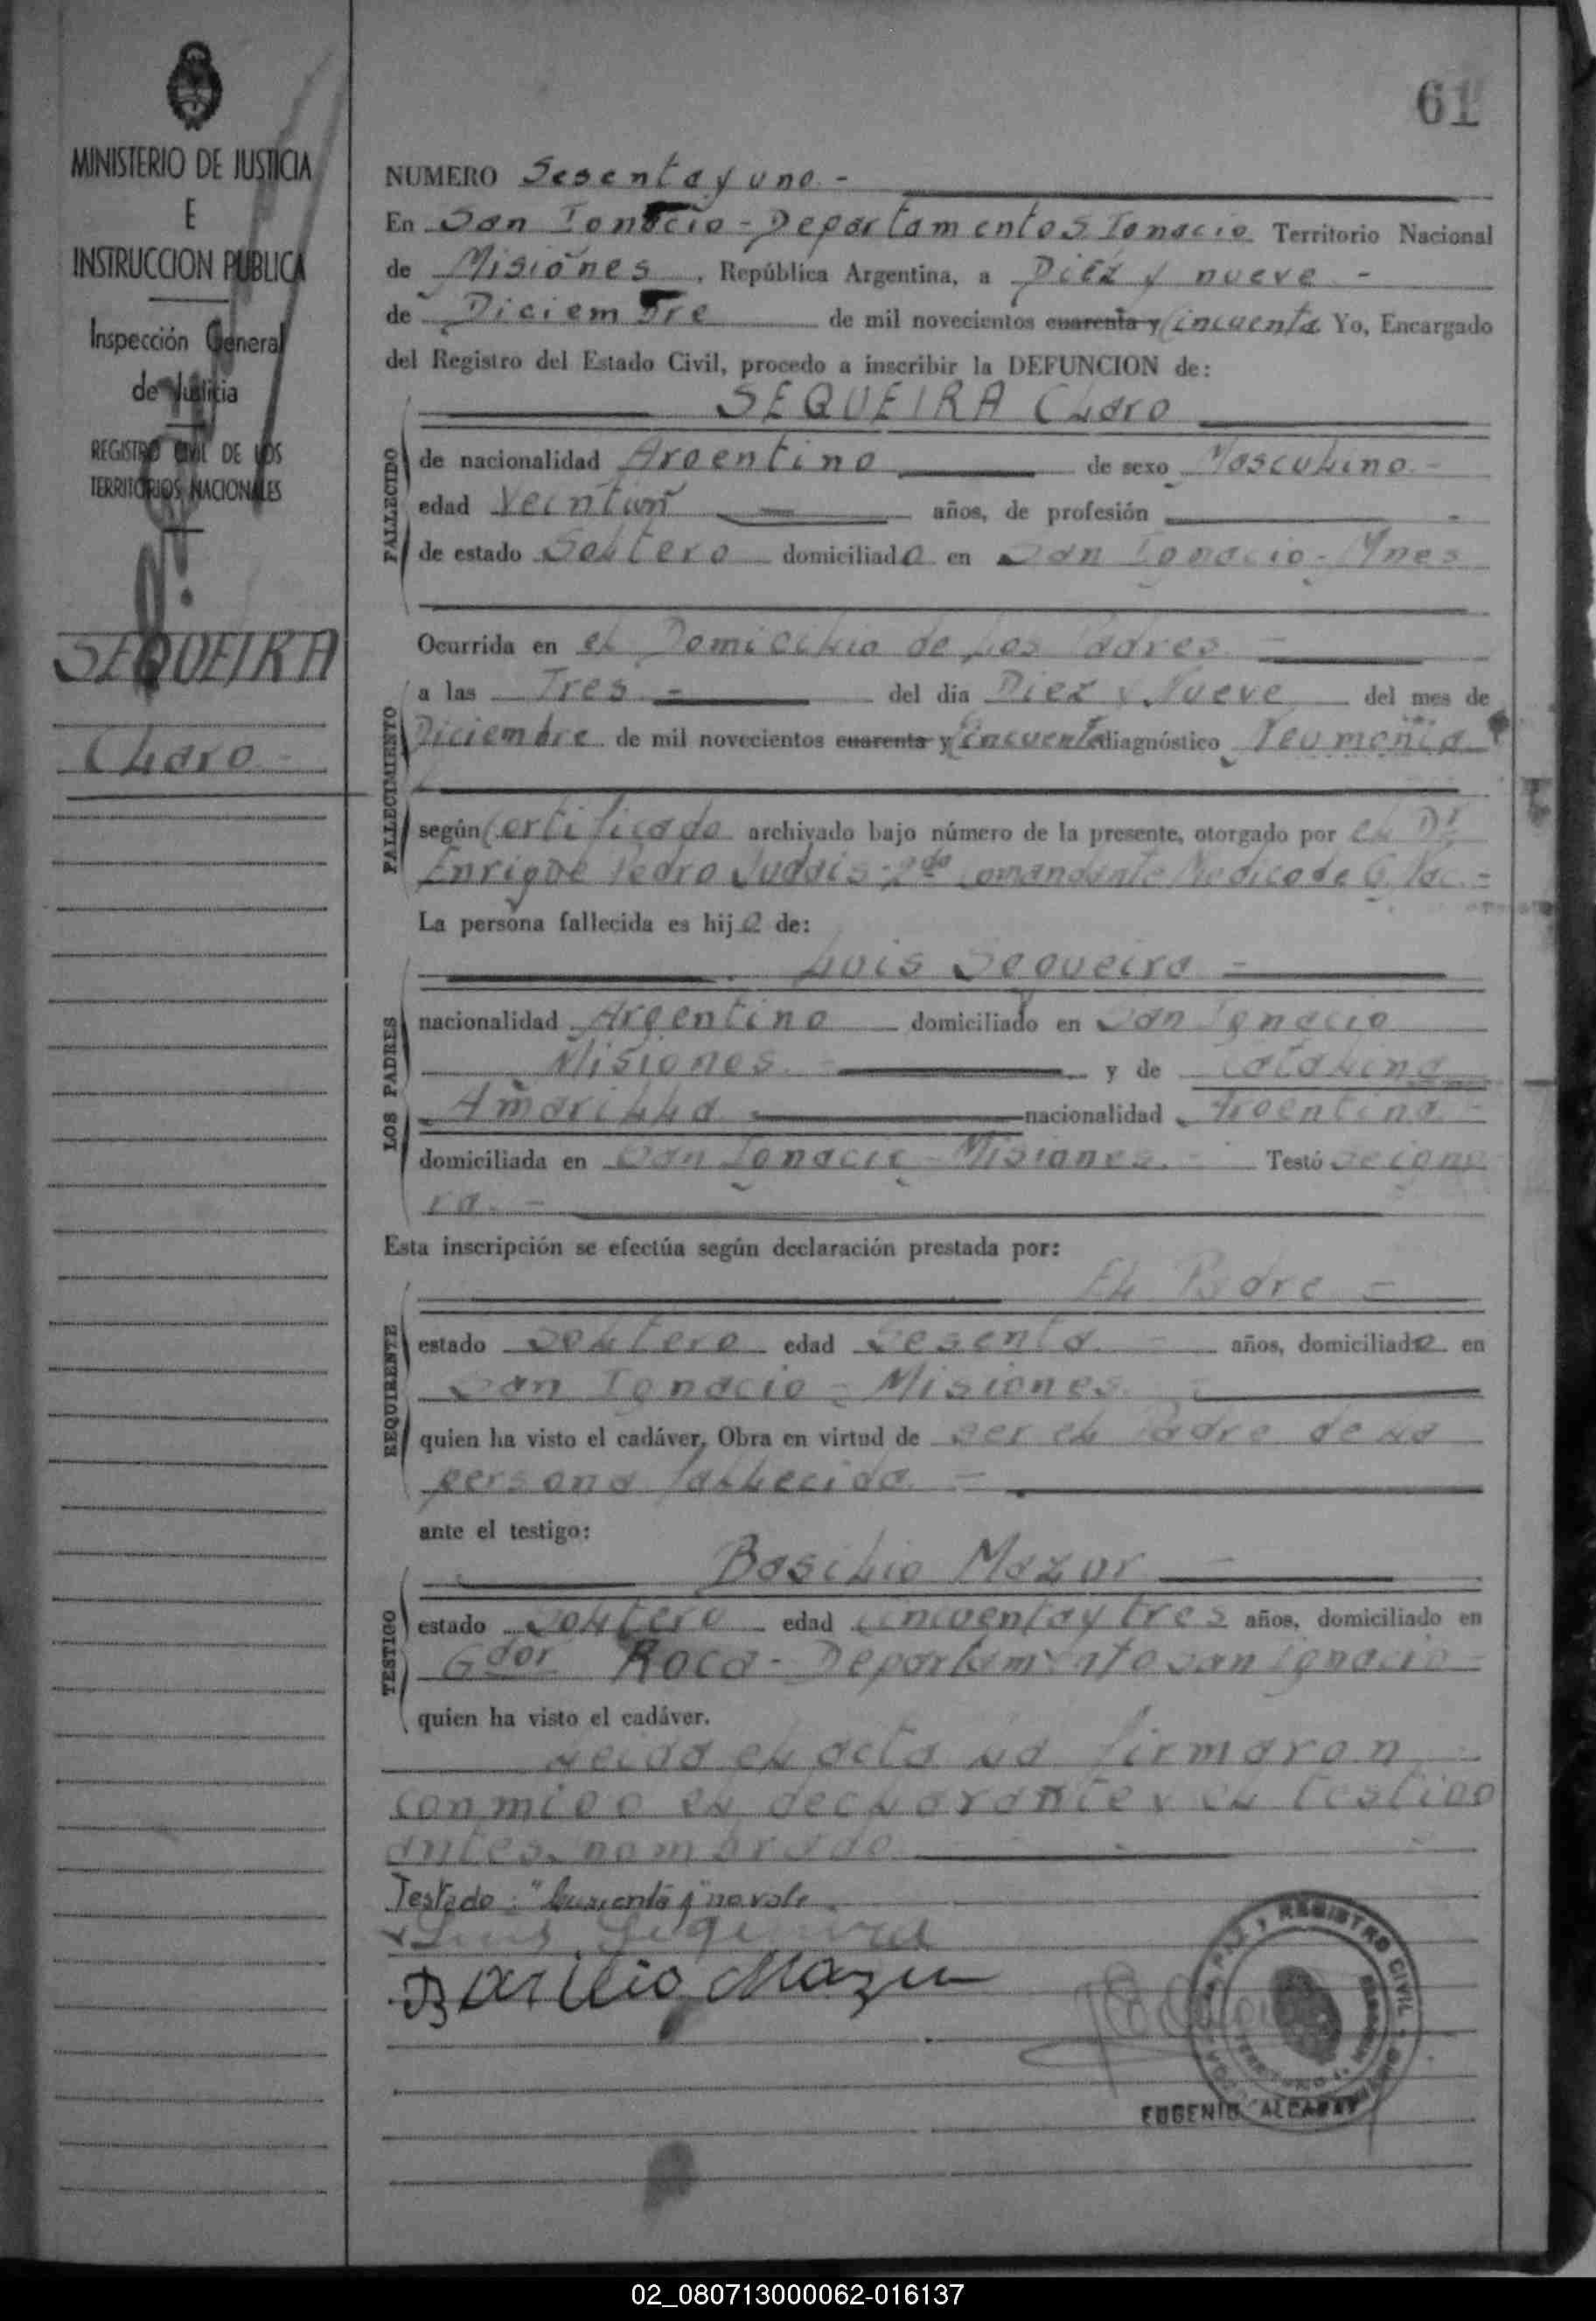 MINISTERIO DE JUSTICIA
E
INSTRUCCION PUBLICA
Inspección General
de Justicia
REGISTRO CIVIL DE LOS
TERRITORIOS NACIONALES
SEQUEIRA
Claro -
61
NUMERO Sesenta y uno. -
En San Ignacio - Departamento S. Ignacio Territorio Nacional
de Misiones, República Argentina, a Diez y nueve -
de Diciembre de mil novecientos cuarenta y Cincuenta Yo, Encargado
del Registro del Estado Civil, procedo a inscribir la DEFUNCION de:
SEQUEIRA Claro
FALLECIDO
de nacionalidad Argentino de sexo Masculino. -
edad Veintun años, de profesión
de estado Soltero domiciliado en San Ignacio - Mnes
Ocurrida en el Domicilio de los Padres -
FALLECIMIENTO
a las Tres - del día Diez y Nueve del mes de
Diciembre de mil novecientos cuarenta y Cincuenta diagnóstico Neumonia
según Certificado archivado bajo número de la presente, otorgado por el Dr
Enrique Pedro 2do Comandante Medico de G. Nac. -
La persona fallecida es hijo de:
Luis Sequeira -
LOS PADRES
nacionalidad Argentino domiciliado en San Ignacio
Misiones y de Catalina
Amarilla nacionalidad Argentina -
domiciliada en San Ignacio - Misiones. - Testó
ra. -
Esta inscripción se efectúa según declaración prestada por:
El Padre -
REQUIRENTE
estado Soltero edad Sesenta - años, domiciliado en
San Ignacio - Misiones. -
quien ha visto el cadáver, Obra en virtud de ser el Padre de la
persona fallecida -
ante el testigo:
Basilio Mazur -
TESTIGO
estado Soltero edad Cincuenta y tres años, domiciliado en
Gdor Roca - Departamento San Ignacio -
quien ha visto el cadáver.
Leida el acta la firmaron
conmigo el declarante y el testigo
antes nombrado
Testado: "Cuarenta y" no vale.
Luis Sequeira
Basilio Mazur
PAZ Y REGISTRO CIVIL
EUGENIO ALCARAZ
02_080713000062-016137